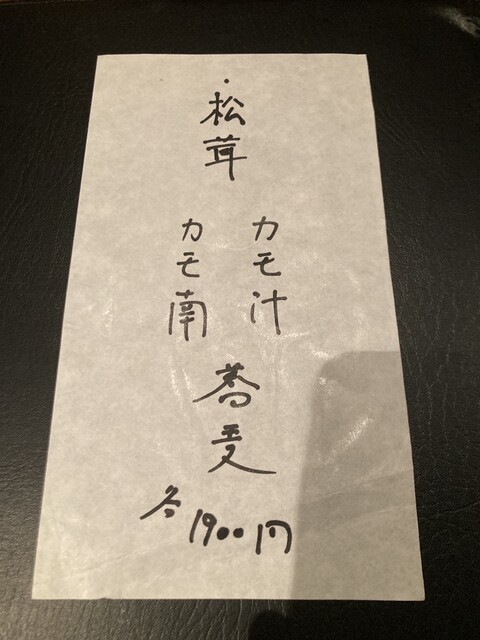 ・松茸
カモ汁
カモ南
蕎麦
各1900円